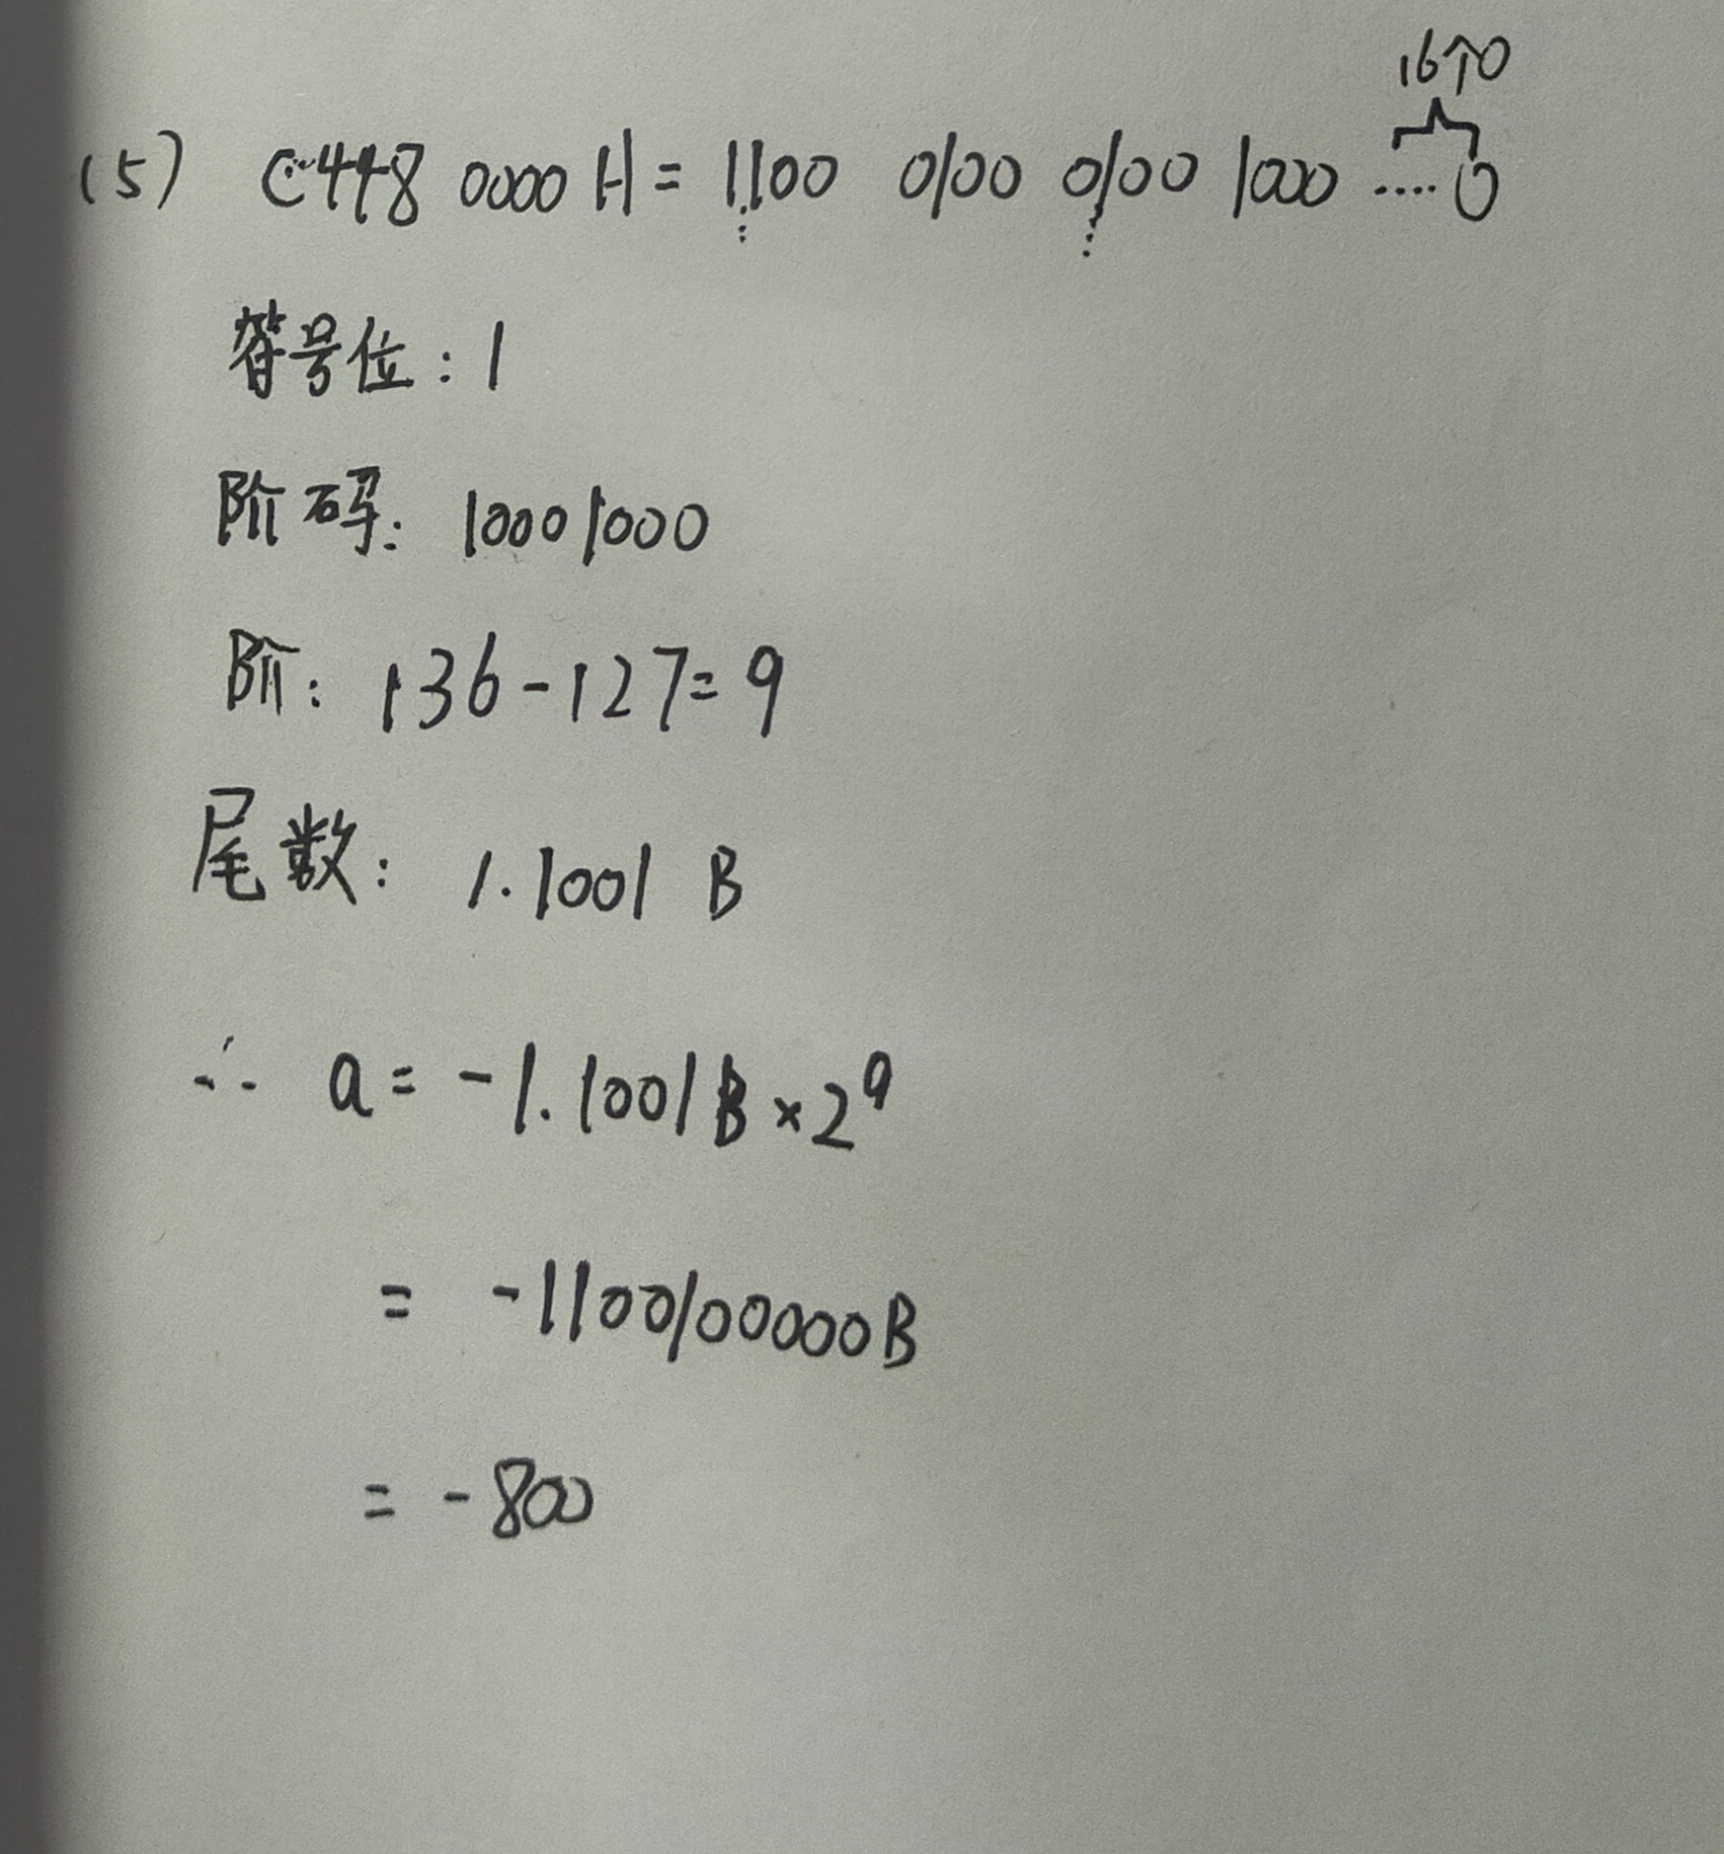 16个0
(5) C448 0000 H = 1100 0100 0100 1000 ....0
符号位: 1
阶码: 10001000
阶: 136-127=9
尾数: 1.1001 B
∴ a = -1.1001B×2⁹
= -1100100000B
= -800